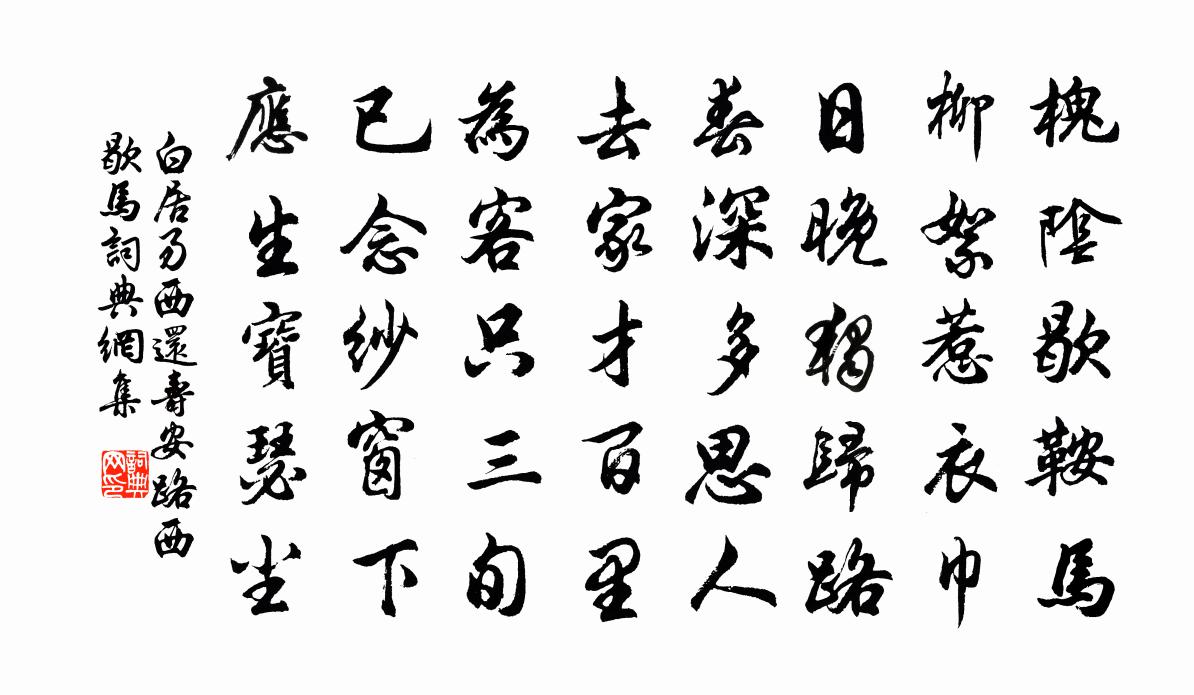 槐陰歇鞍馬
柳絮惹衣巾
日晚獨歸路
春深多思人
去家才百里
為客只三旬
已念紗窗下
應生寶瑟尘
白居易西還壽安路西
歇馬詞典網集
詞典
网印